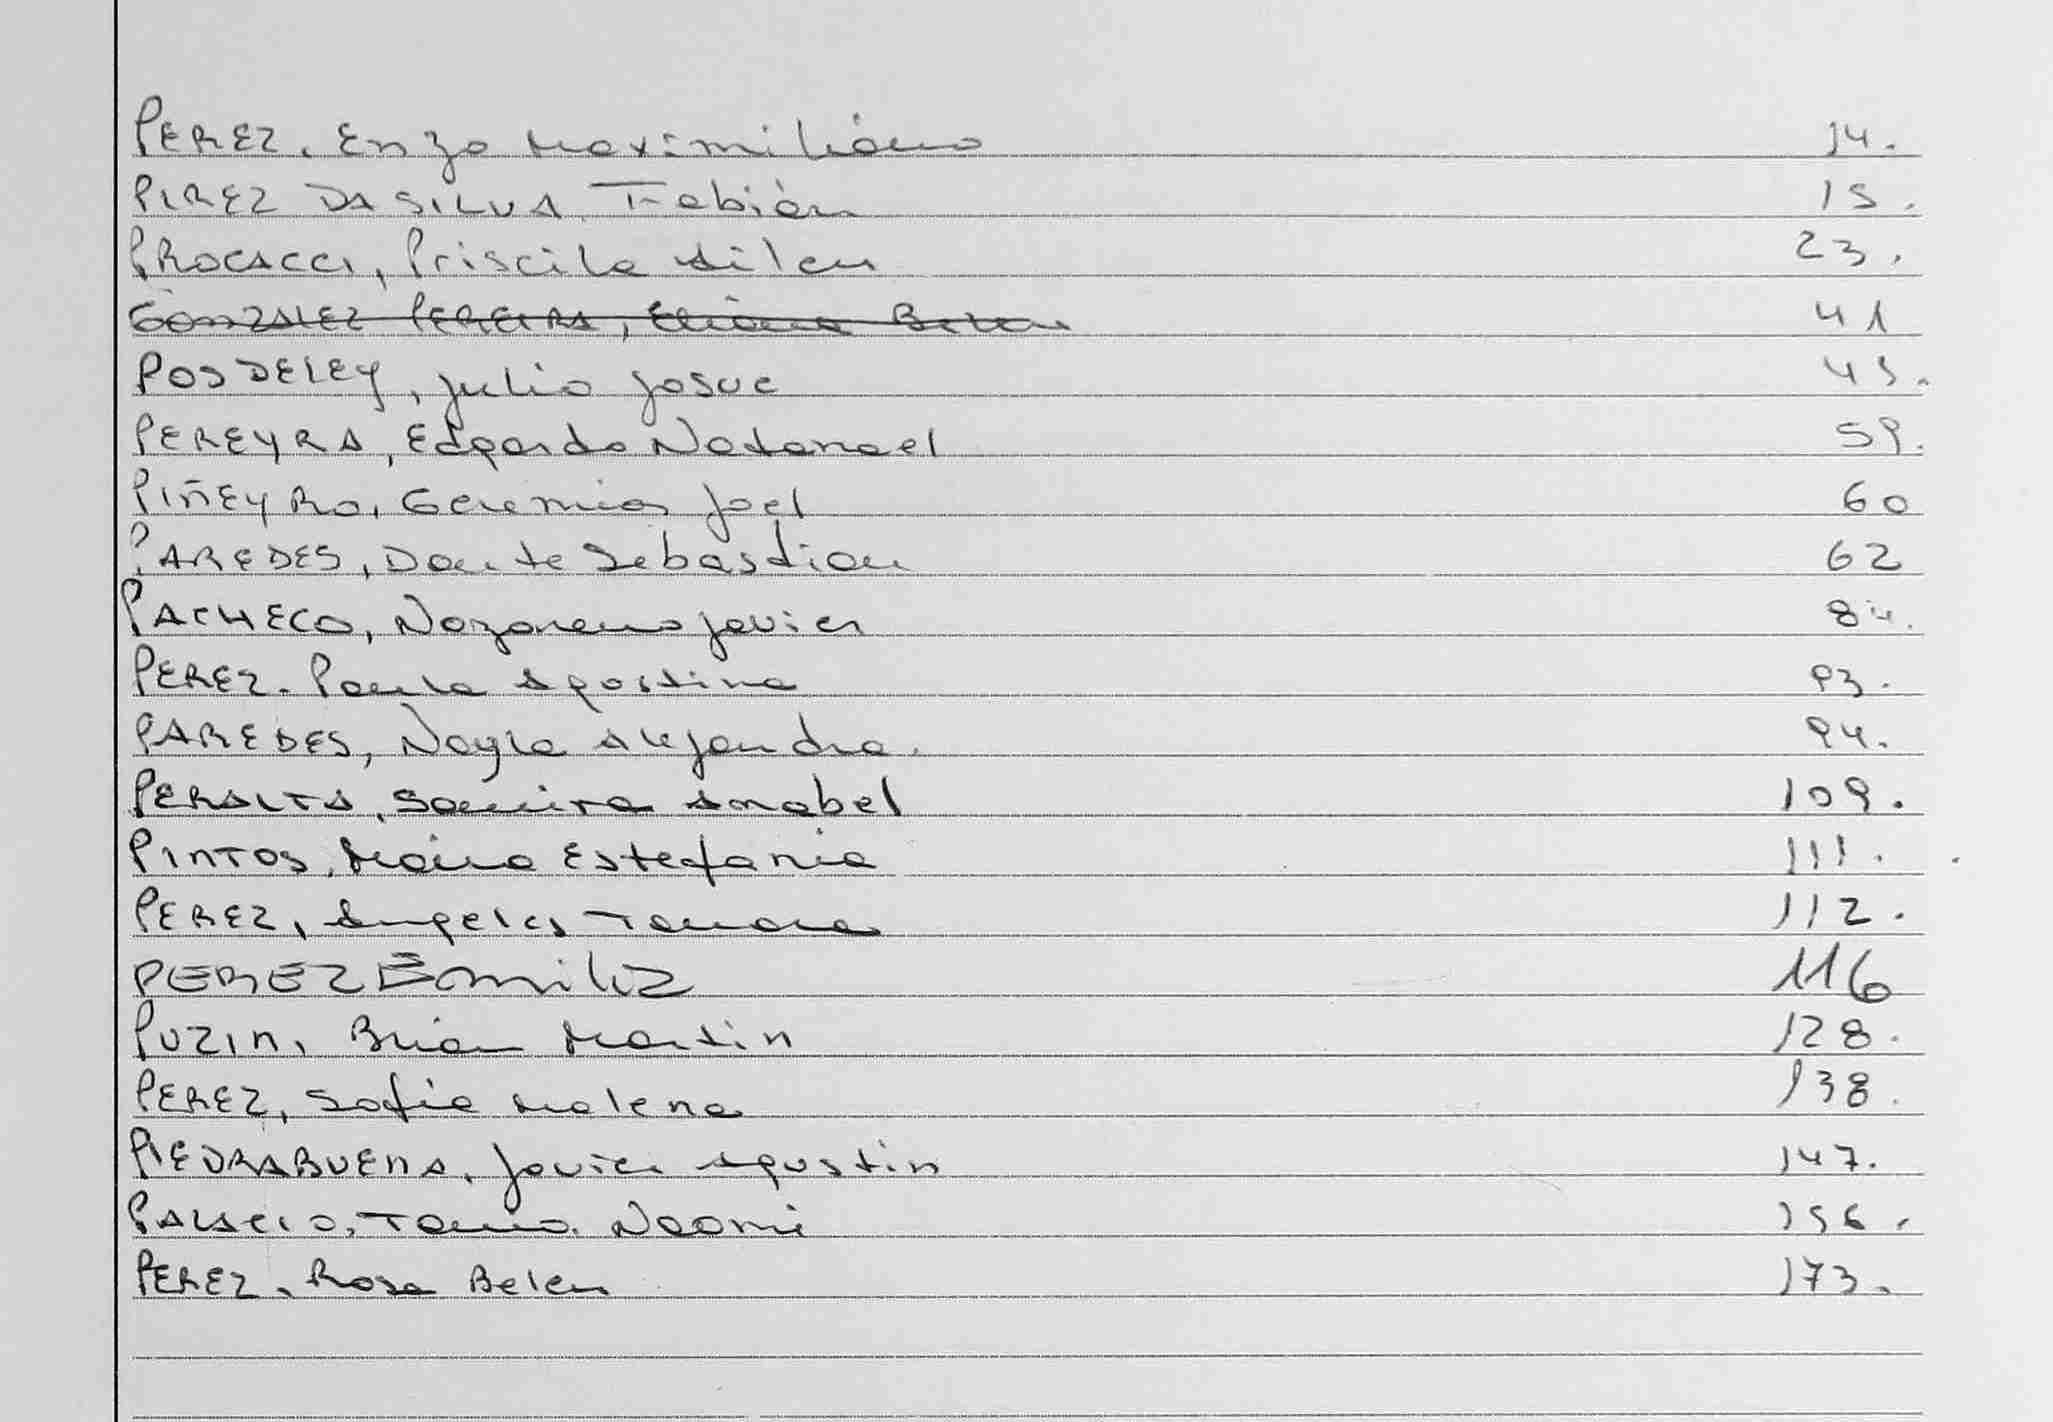 PEREZ, Enzo Maximiliano 14.
PIREZ DA SILVA Fabián 15.
PROCACCI, Priscila Ailen 23.
GONZALEZ PEREIRA, Eliana Belen 41
POSDELEY, Julio Josue 45.
PEREYRA, Edgardo Natanael 59.
PIÑEYRO, Geremias Joel 60
PAREDES, Dante Sebastian 62
PACHECO, Nazareno Javier 84.
PEREZ. Paula Agostina 93.
PAREDES, Nayla Alejandra. 94.
PERALTA, Samira Anabel 109.
PINTOS, Maira Estefania 111.
PEREZ, Angeles Tamara 112.
PEREZ Emilia 116
PUZIN, Brian Martin 128.
PEREZ, Sofia Malena 138.
PIEDRABUENA, Javier Agustin 147.
PALACIO, Tania Naomi 156.
PEREZ, Rosa Belen 173.